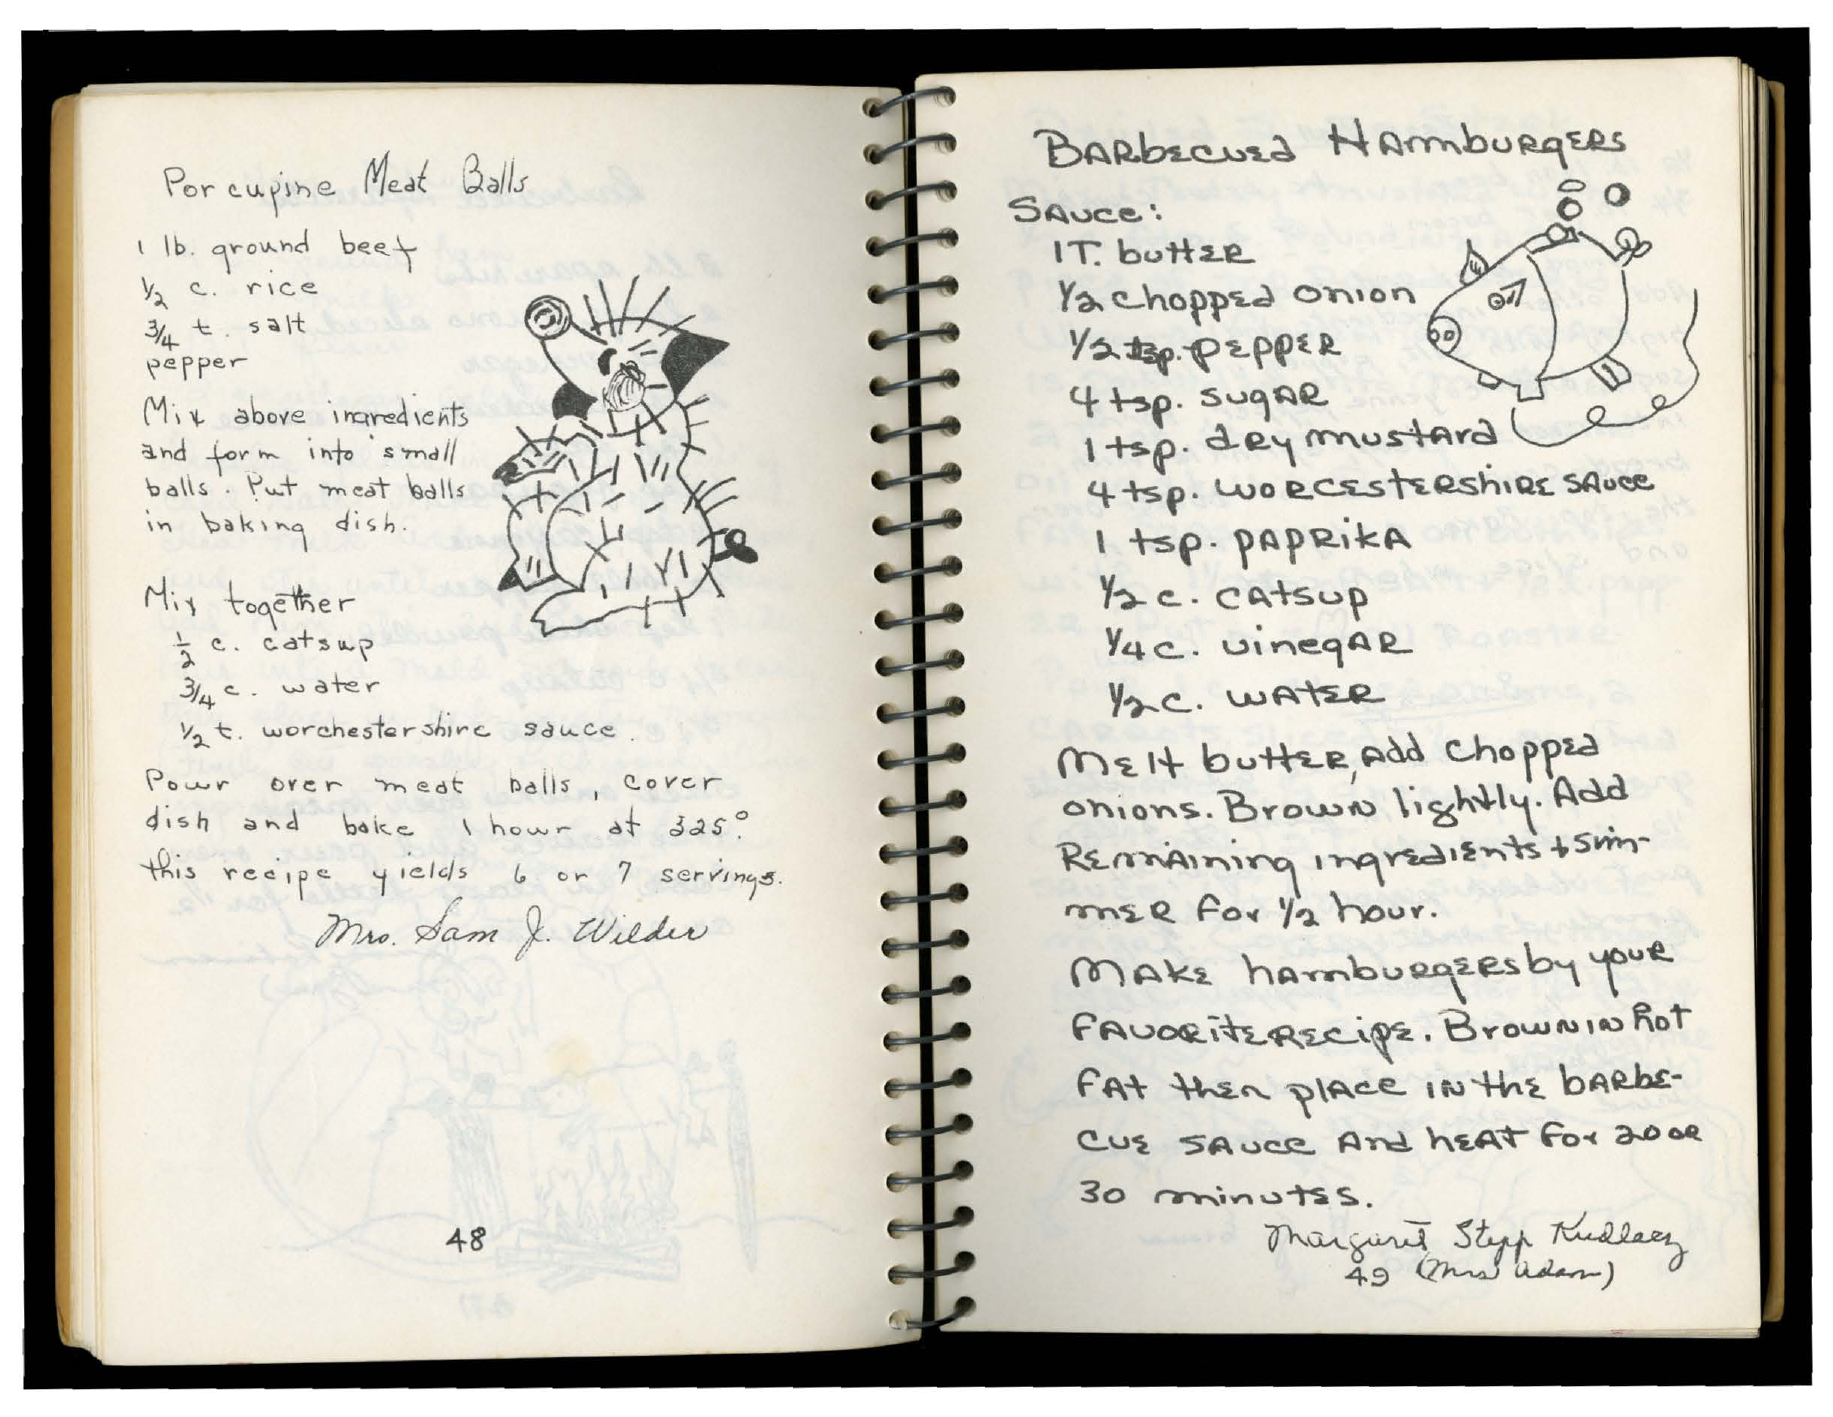 Porcupine Meat Balls
1 lb. ground beef
1/2 c. rice
3/4 t. salt
pepper
Mix above ingredients
and form into small
balls. Put meat balls
in baking dish.
Mix together
1/2 c. catsup
3/4 c. water
1/2 t. worchestershire sauce.
Pour over meat balls, cover
dish and bake 1 hour at 325°.
this recipe yields 6 or 7 servings.
Mrs. Sam J. Wilder
48
Barbecued Hamburgers
Sauce:
1 T. butter
1/2 chopped onion
1/2 tsp. pepper
4 tsp. sugar
1 tsp. dry mustard
4 tsp. worcestershire sauce
1 tsp. paprika
1/2 c. catsup
1/4 c. vinegar
1/2 c. water
Melt butter, add chopped
onions. Brown lightly. Add
remaining ingredients + sim-
mer for 1/2 hour.
Make hamburgers by your
favorite recipe. Brown in hot
fat then place in the barbe-
cue sauce and heat for 20 or
30 minutes.
Margaret Stepp Kudlacz
49 (Mrs Adam)